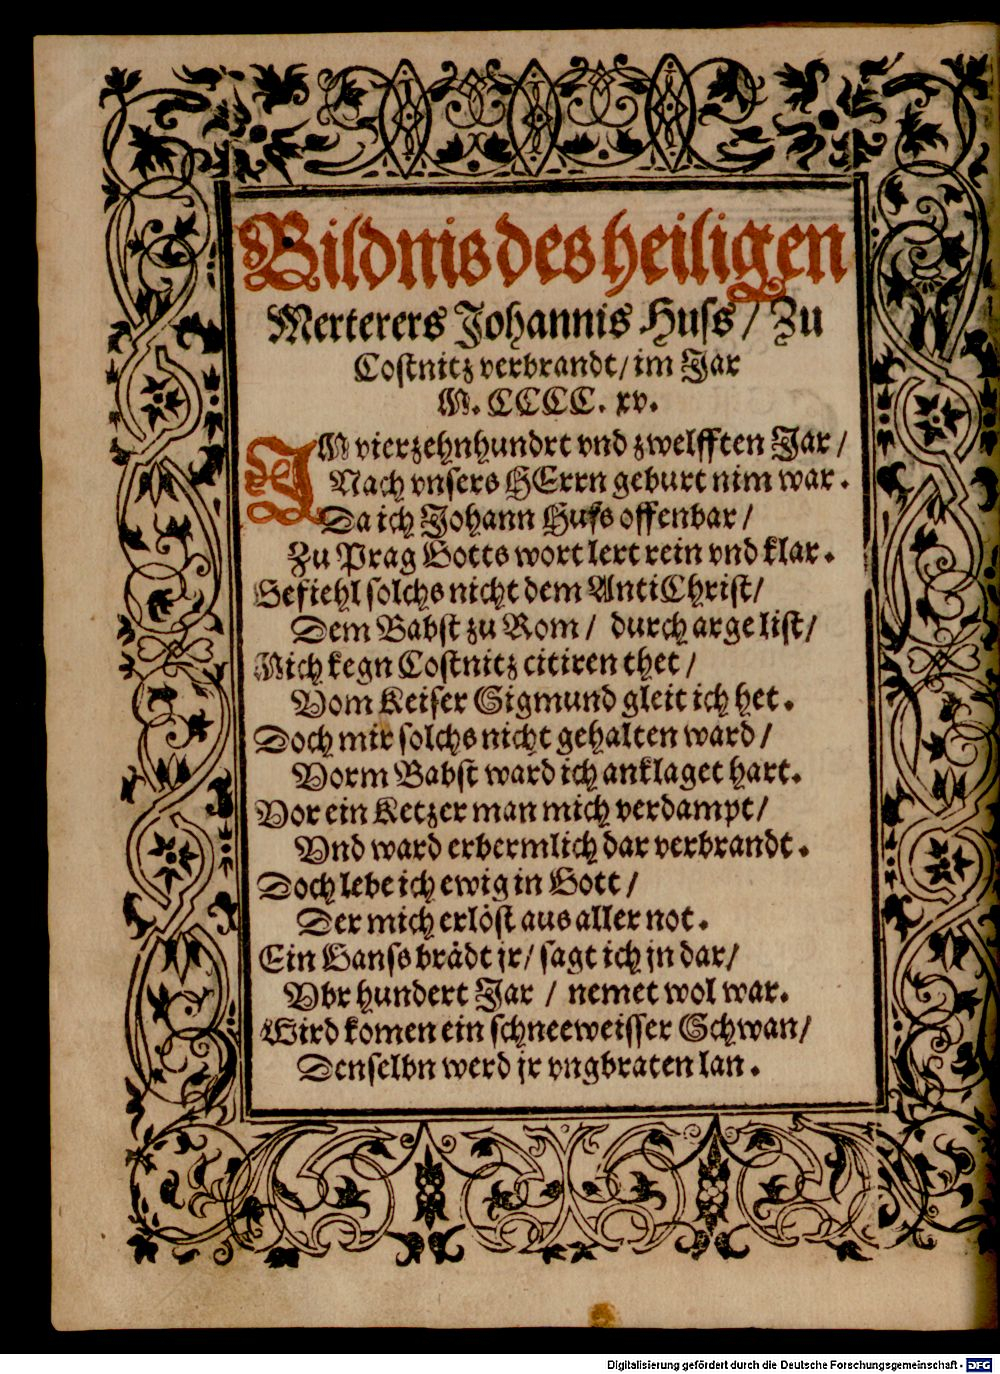 Bildnis des heiligen
Merterers Johannis Huss / Zu
Costnitz verbrandt / im Jar
M. CCCC. xv.
IM vierzehnhundrt vnd zwelfften Jar /
Nach vnsers HErrn geburt nim war.
Da ich Johann Huss offenbar /
Zu Prag Gotts wort lert rein vnd klar.
Gefiehl solchs nicht dem AntiChrist /
Dem Babst zu Rom / durch arge list /
Mich kegn Costnitz citiren thet /
Vom Keiser Sigmund gleit ich het.
Doch mir solchs nicht gehalten ward /
Vorm Babst ward ich anklaget hart.
Vor ein Ketzer man mich verdampt /
Vnd ward erbermlich dar verbrandt.
Doch lebe ich ewig in Gott /
Der mich erlöst aus aller not.
Ein Ganss brädt jr / sagt ich jn dar /
Vbr hundert Jar / nemet wol war.
Wird komen ein schneeweisser Schwan /
Denselbn werd jr vngbraten lan.
Digitalisierung gefördert durch die Deutsche Forschungsgemeinschaft - DFG